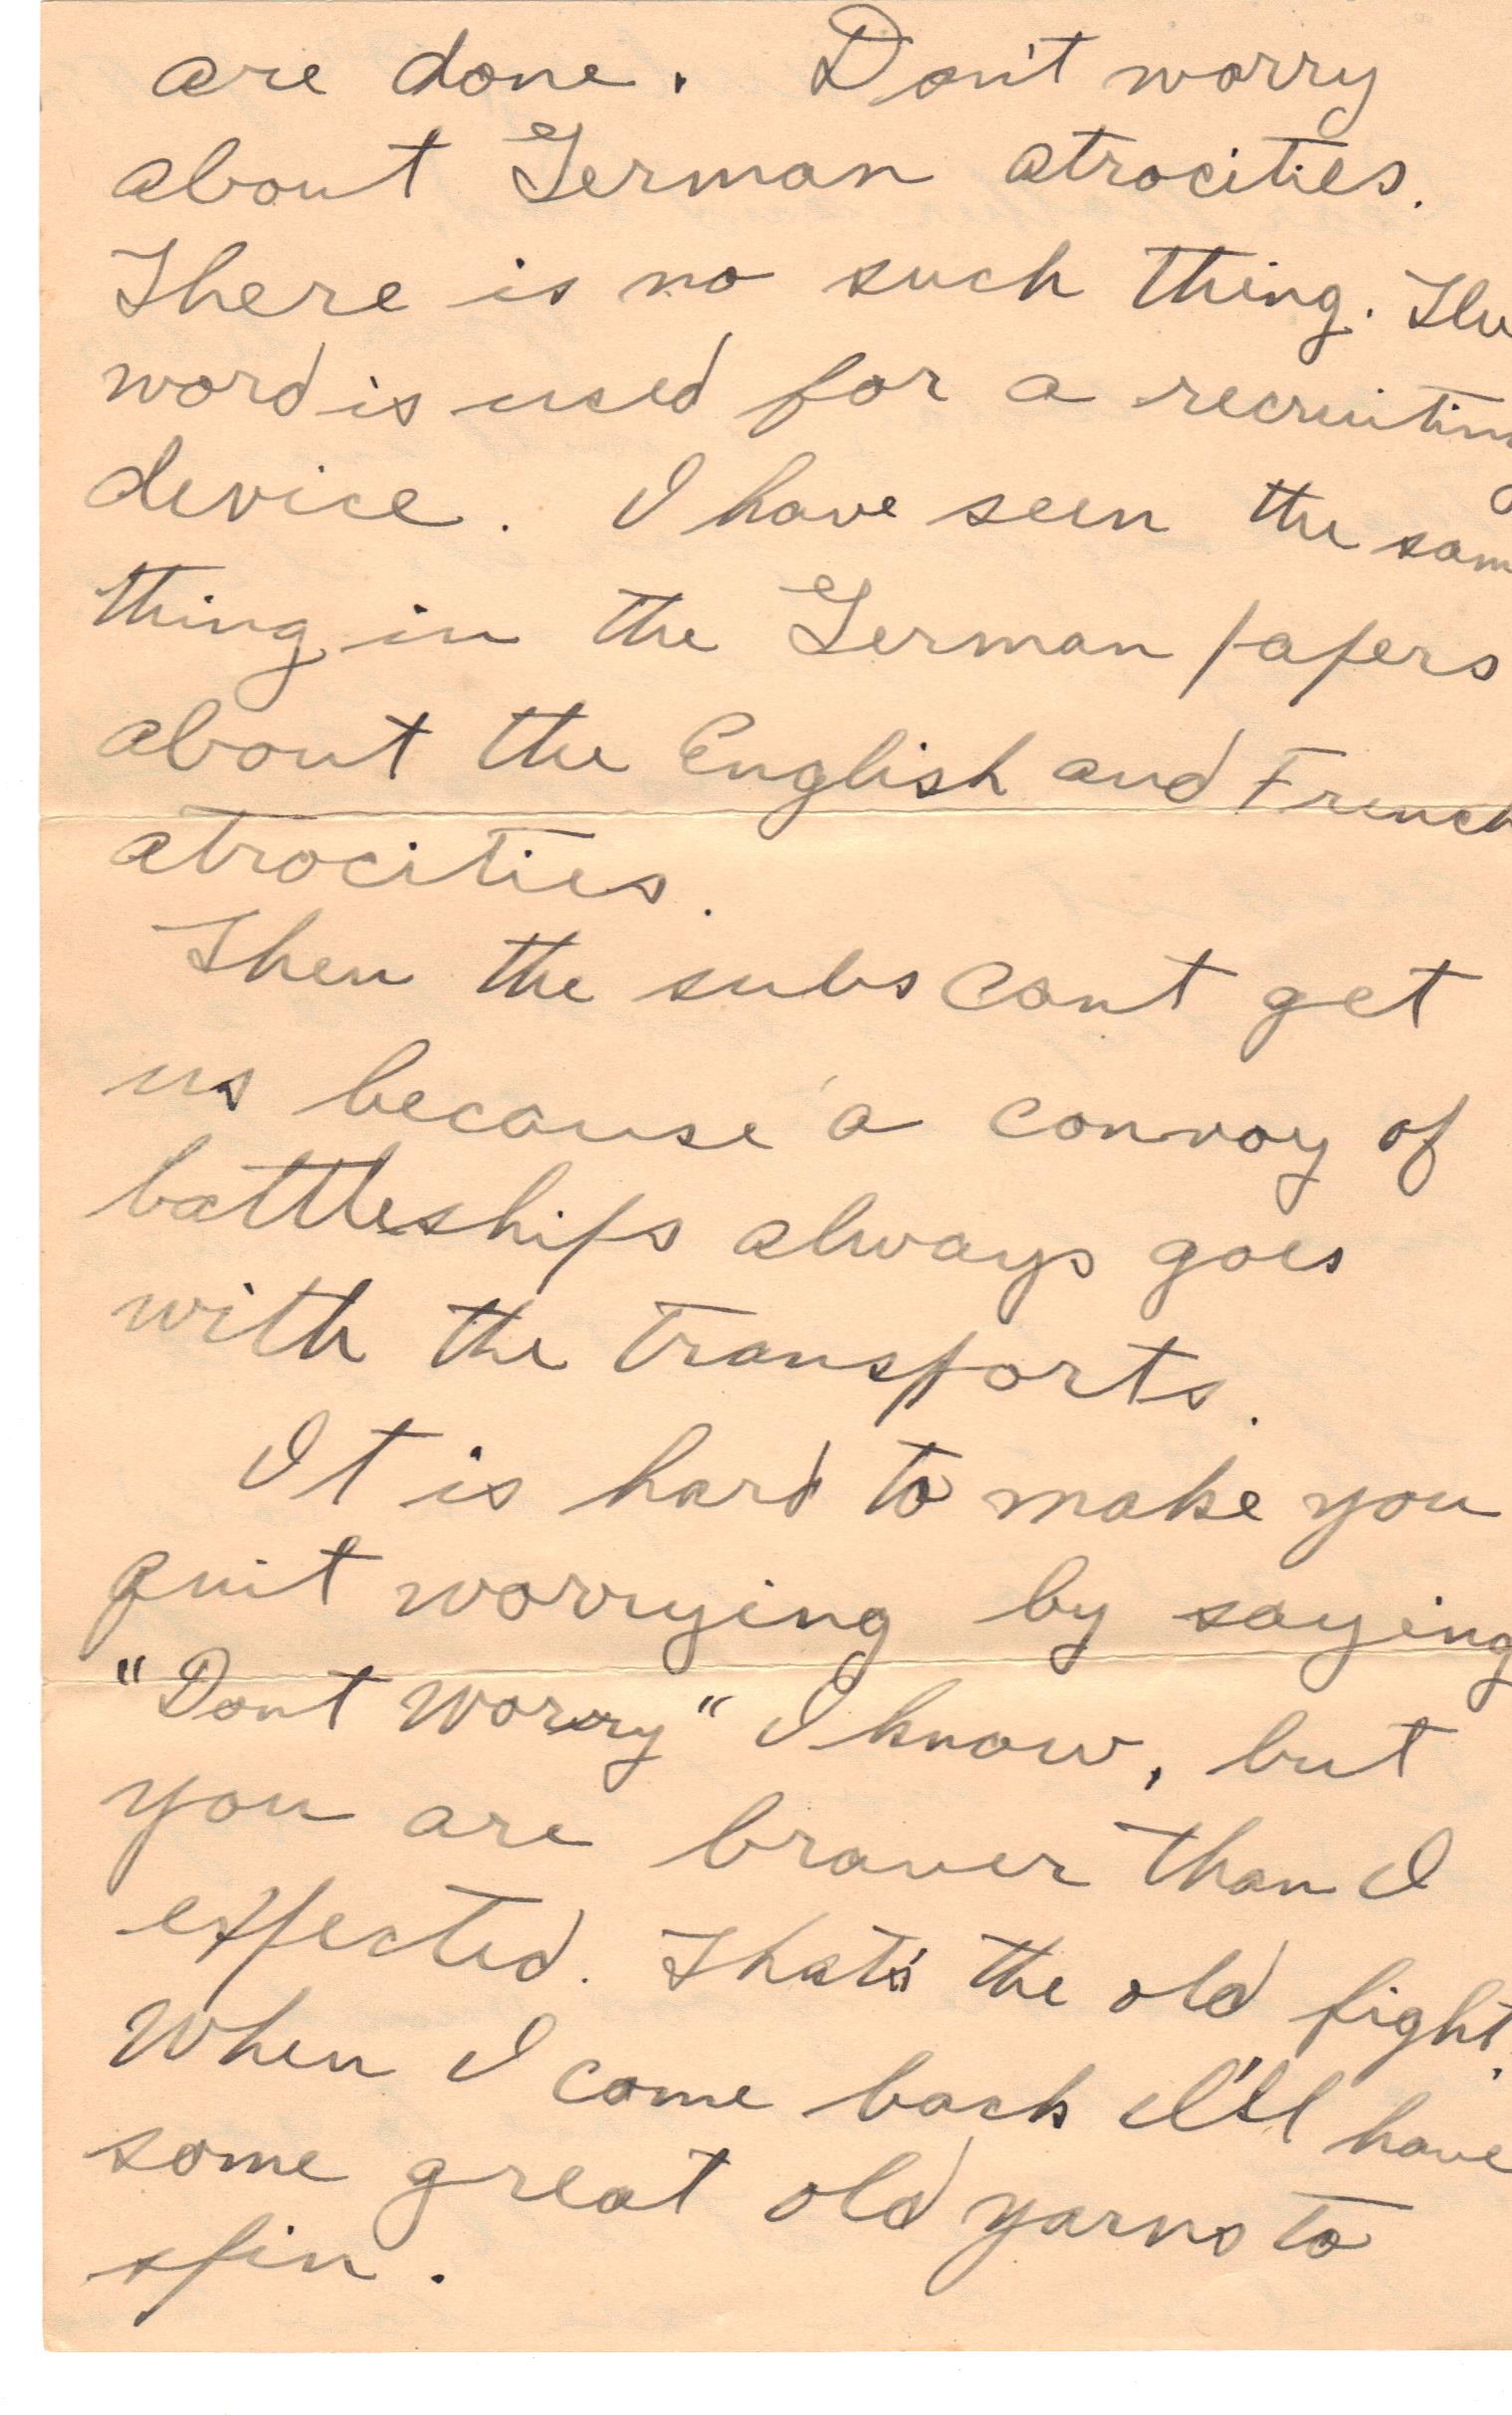 are done. Don't worry
about German atrocities.
There is no such thing. The
word is used for a recruiting
device. I have seen the sam
thing in the German papers
about the English and French
atrocities.
Then the subs cant get
us because a convoy of
battleships always goes
with the transports.
It is hard to make you
quit worrying by saying
"Dont Worry" I know, but
you are braver than I
expected. That's the old fight.
When I come back I'll have
some great old yarns to
spin.